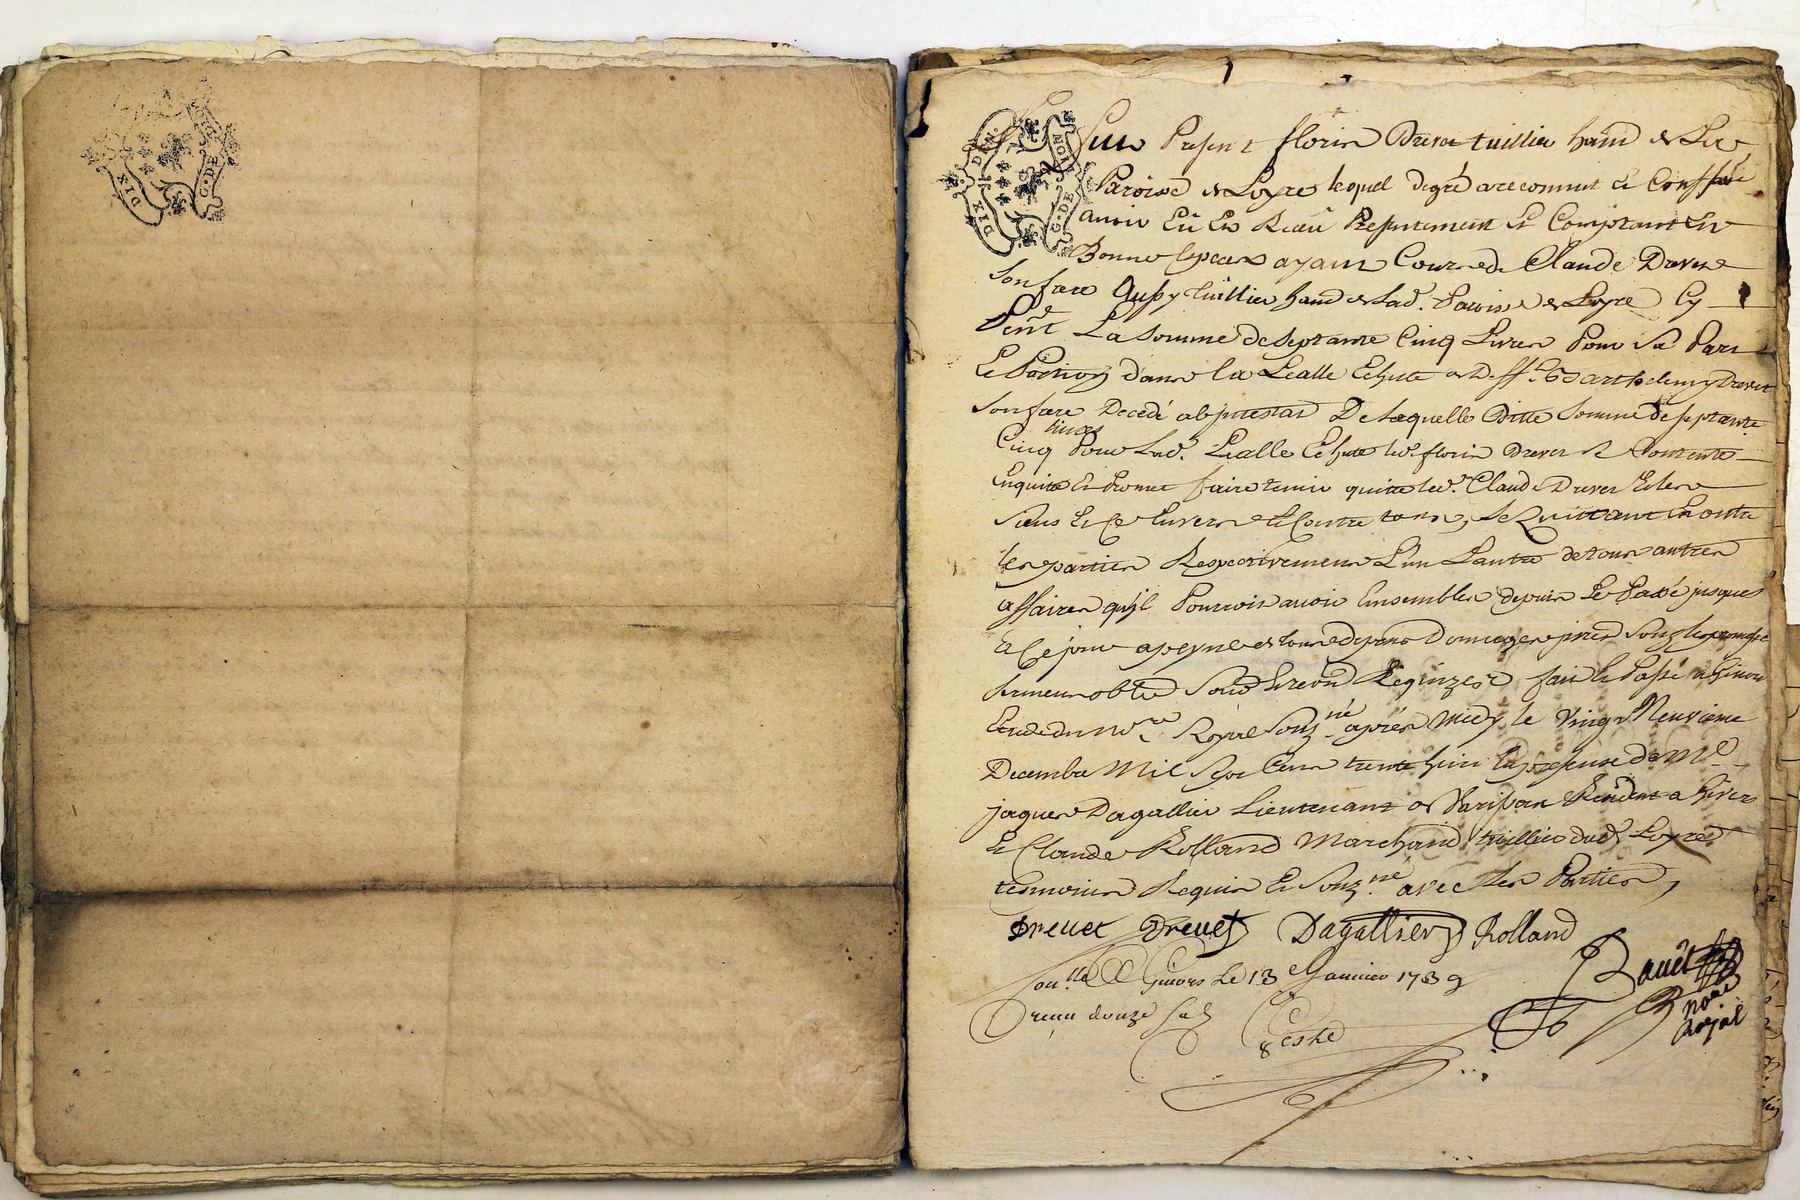 DIX DEN.
G. DE
DIX DEN.
G. DE
NOIL
Present florin Drevet tuillier hant de La
Paroisse de Loyre lequel de gré a reconnut et Conffessé
avoir Eü Et Receu Presentement Et Comptant En
Bonne Especes ayant Cours de Claude Drevet
Son frere Aussy tuillier hant de Lad. Paroisse de Loyre Cy
Pent La Somme de Septante Cinq Livres Pour Sa Part
Et Portion dans la Echute de Barthelemy Drevet
Son frere Decedé abjntestat De Laquelle ditte Somme de Septante
livres
Cinq Pour Lad. Echute led. florin Drevet Contente
Enquitte Et Promet faire tenir quitte led. Claude Drevet Et les
Siens Et Ce Envers Et Contre tous, Se Quittant En outre
les parties Respectivement L'un L'autre de tous autres
affaires qu'jl Pourroit avoir Ensembles depuis Le Passé jusques
a Ce jour a peyne de tous depens Domages jnterest
Serment obligé Soub fait Et Passé a Givors
Etude du nore. Royal Souzné. après Midy le Vingt Neuvieme
Decembre Mil Sept Cent trente huit En presence de Me.
jaques Dagallier Lieutenant de Resident a Givors
Et Claude Rolland Marchand tuillier dud. Loyre
temoins Requis Et Souzné. avec les Parties,
Drevet Drevet Dagallier Rolland
Conllé a Givors Le 13e Janvier 1739
Receu douze Sols
Bauêt
nore
Royal